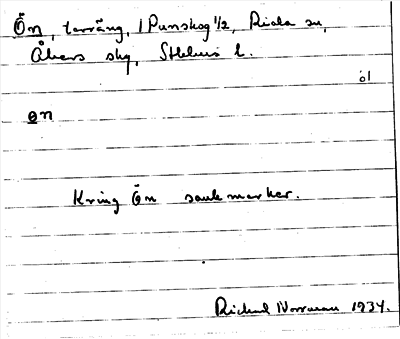 Ön, terräng, 1 Punskog 1/2, Riala sn,
Åkers skg, Sthlms l.
ol
øn
Kring Ön sank marker.
Richard Norrman 1934.